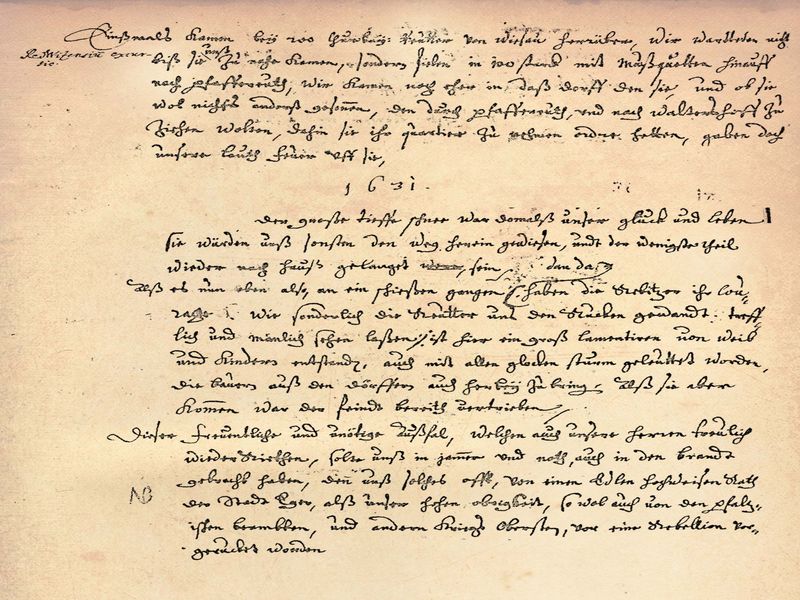 Einßmals kamen bey 200 Churbay: Reütter von Wiesau herüber, wir wartteden nicht
Redwizensium excur-
sio.
biß sie unß zu nahe kamen, sondern fielen in 100 starck mit Mußquetten hinauff
nach Pfaffenreuth, wir kamen noch eher in daß dorff den sie, und ob sie
wol nichts anderß gesonnen, den durch Pfaffenreuth, und nach Walterßhoff zu
ziehen wolten, dahin sie ihr quartier zu nehmen ordre hetten, gaben doch
unsere leuth feüer uff sie,
1631.
der große tieffe schnee war domalß unser glück und leben
sie würden unß sonsten den weg herein gewiesen, undt der wenigste theil
wieder nach hauß gelanget sein, dan da
Alß es nun eben also, an ein schießen gangen, haben die Redwitzer ihr cou-
rage, wie sonderlich die Reütter und den Stucken gewandt: treff-
lich und mänlich sehen laßen, ist hier ein groß lamentiren von weib
und kindern entstanden, auch mit allen glocken sturm geleüttet worden,
die bauern auß den dörffern auch herbey zu bring. Alß sie aber
kommen war der feindt bereith vertrieben
Dieser freventliche und unötige Außfal, welchen auch unsere herren treülich
wiederriethen, solte unß in jamer und noth, auch in den brandt
gebracht haben, den unß solches offt, von einem Edlen hochweisen Rath
NB
der Stadt Eger, alß unser hohen obrigkeit, so wol auch von den pfältz-
ischen beambten, und andern Kriegs Obersten, vor eine Rebellion vor-
gerücket worden